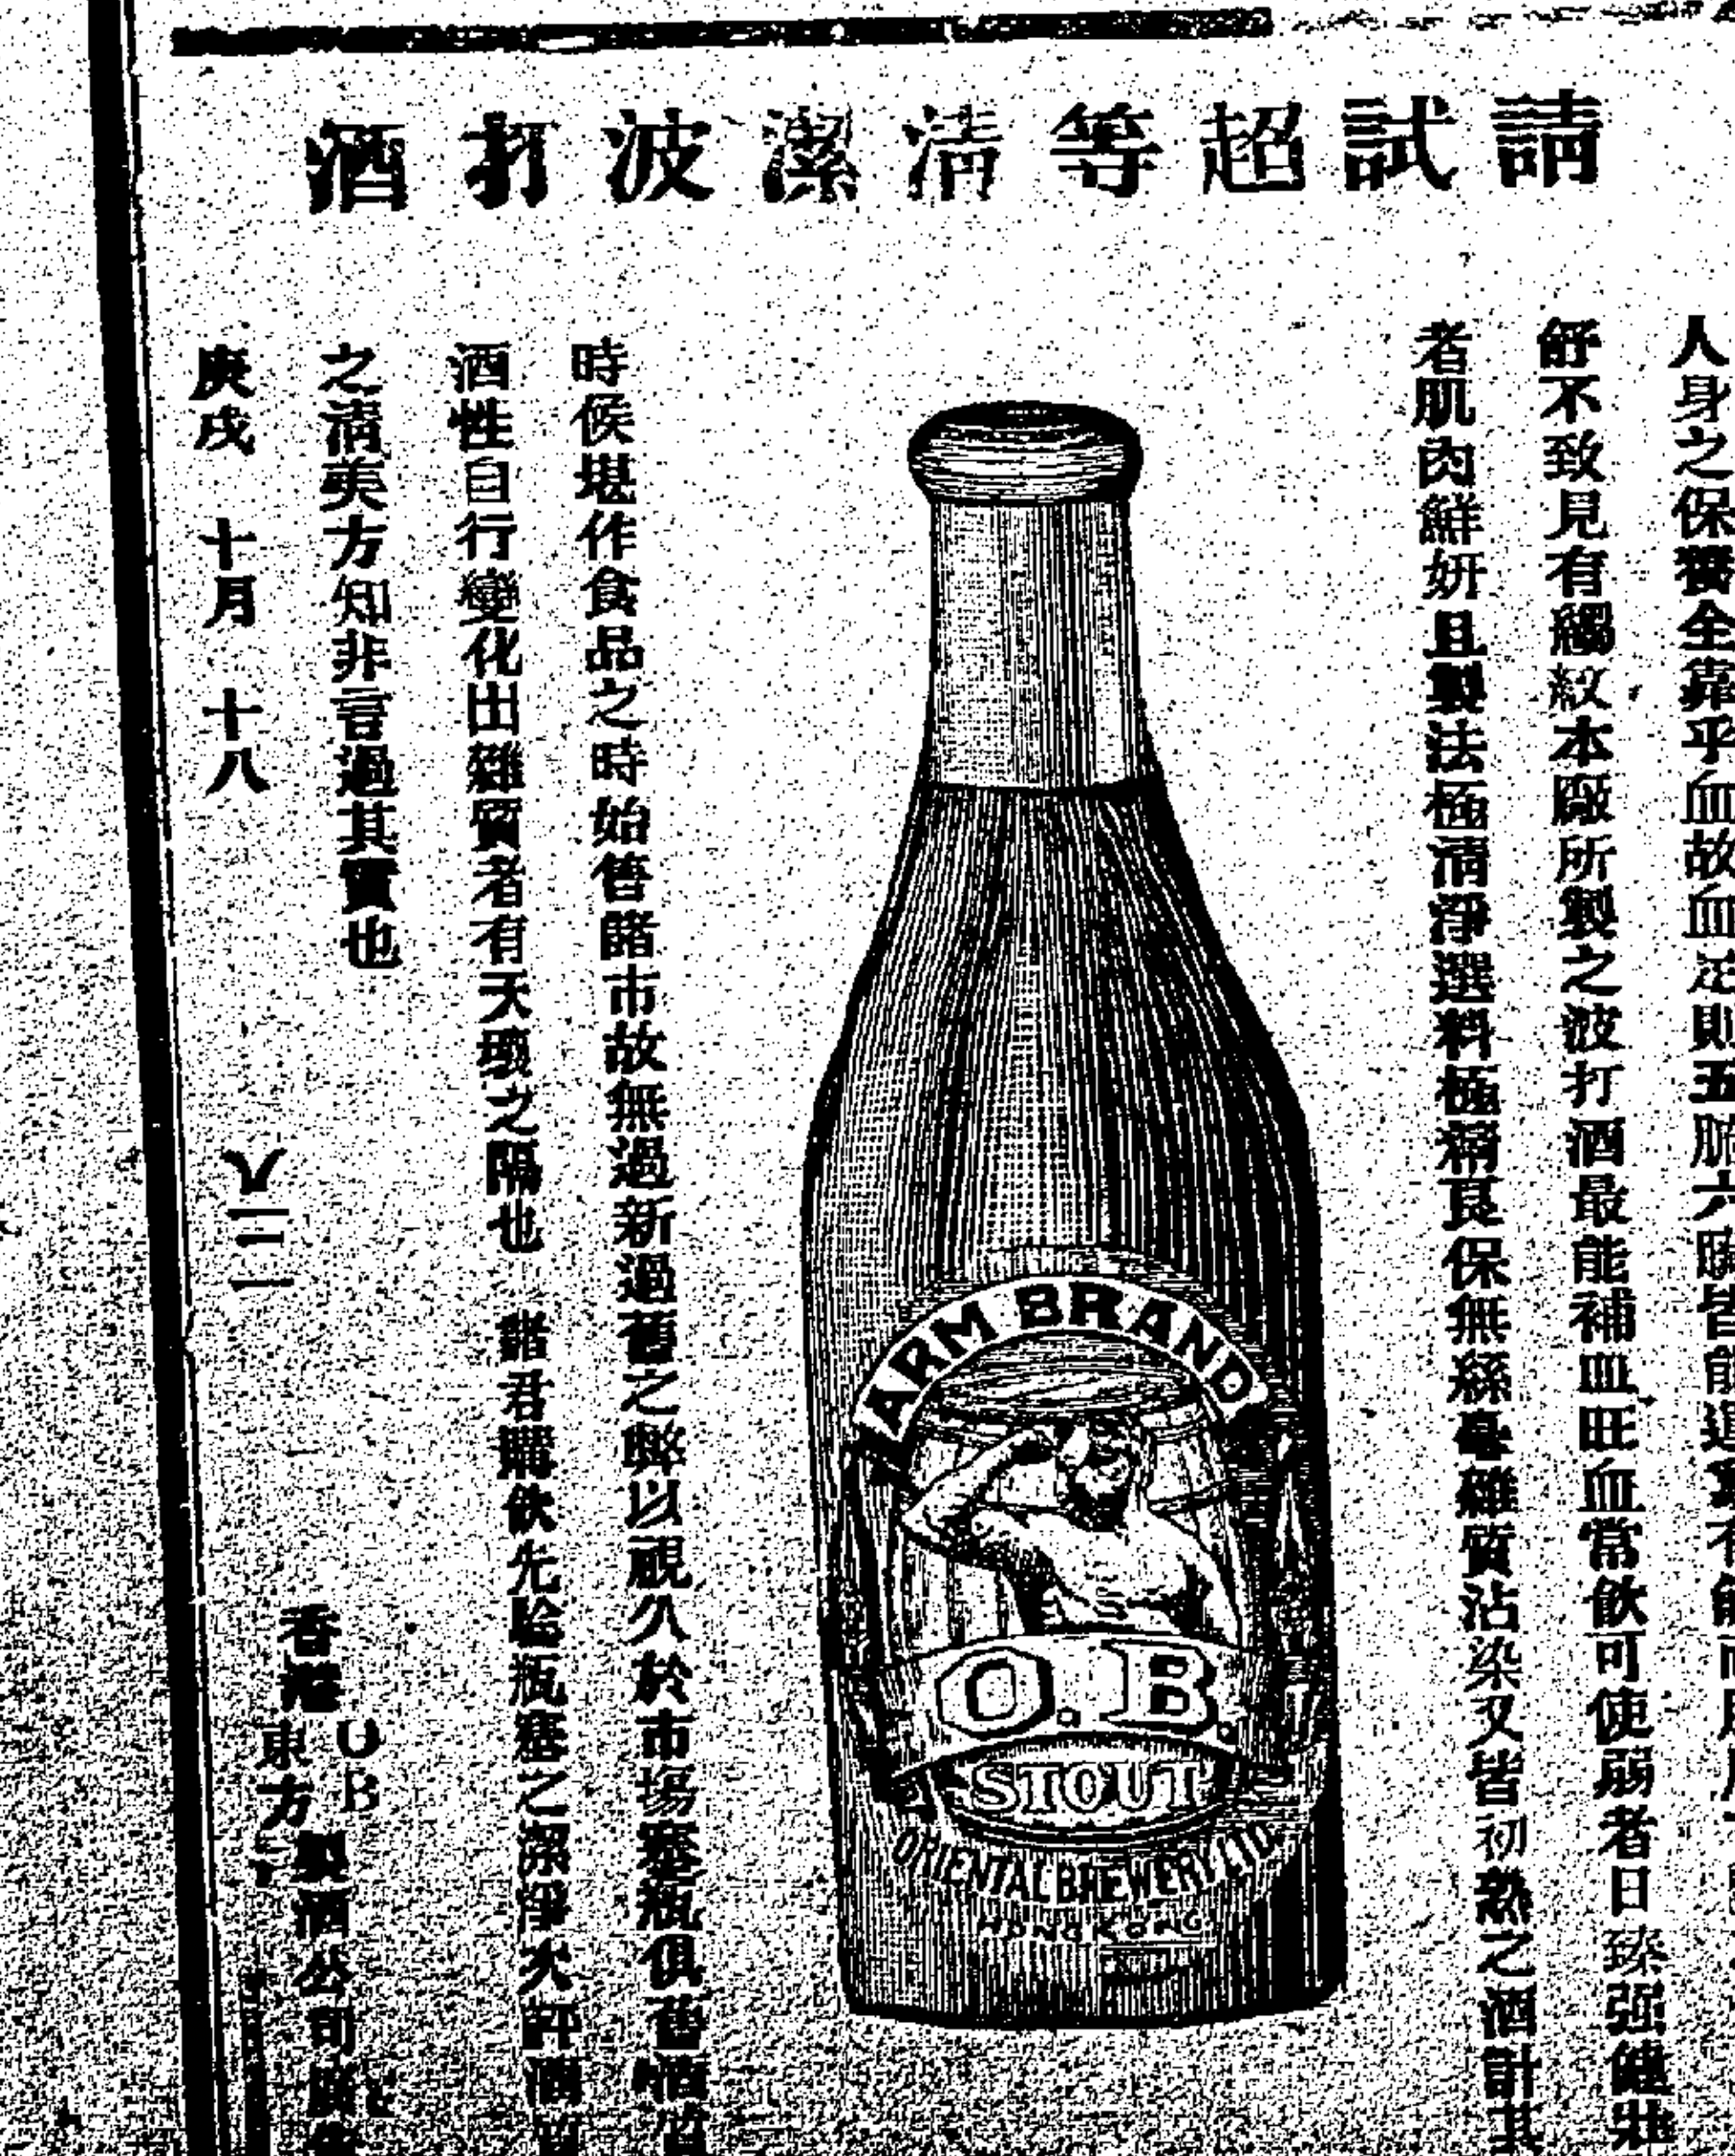 請試超等清潔波打酒
人身之保養全靠乎血故血足則五臟六腑皆能
舒不致見有縐紋本廠所製之波打酒最能補血旺血常飲可使弱者日臻强健壯
者肌肉鮮妍且製法極清淨選料極精良保無絲毫雜質沾染又皆初熟之酒計其
ARM BRAND
O.B.
STOUT
ORIENTAL BREWERY LTD
HONGKONG
時候堪作食品之時始售諸市故無過新過舊之弊以視久於市塲塞瓶俱舊酒質
酒性自行變化出雜質者有天壤之隔也 諸君購飲先騐瓶塞之潔淨次評酒質
之清美方知非言過其實也
庚戌 十月 十八
香港 O B 東方 製酒公司廣告